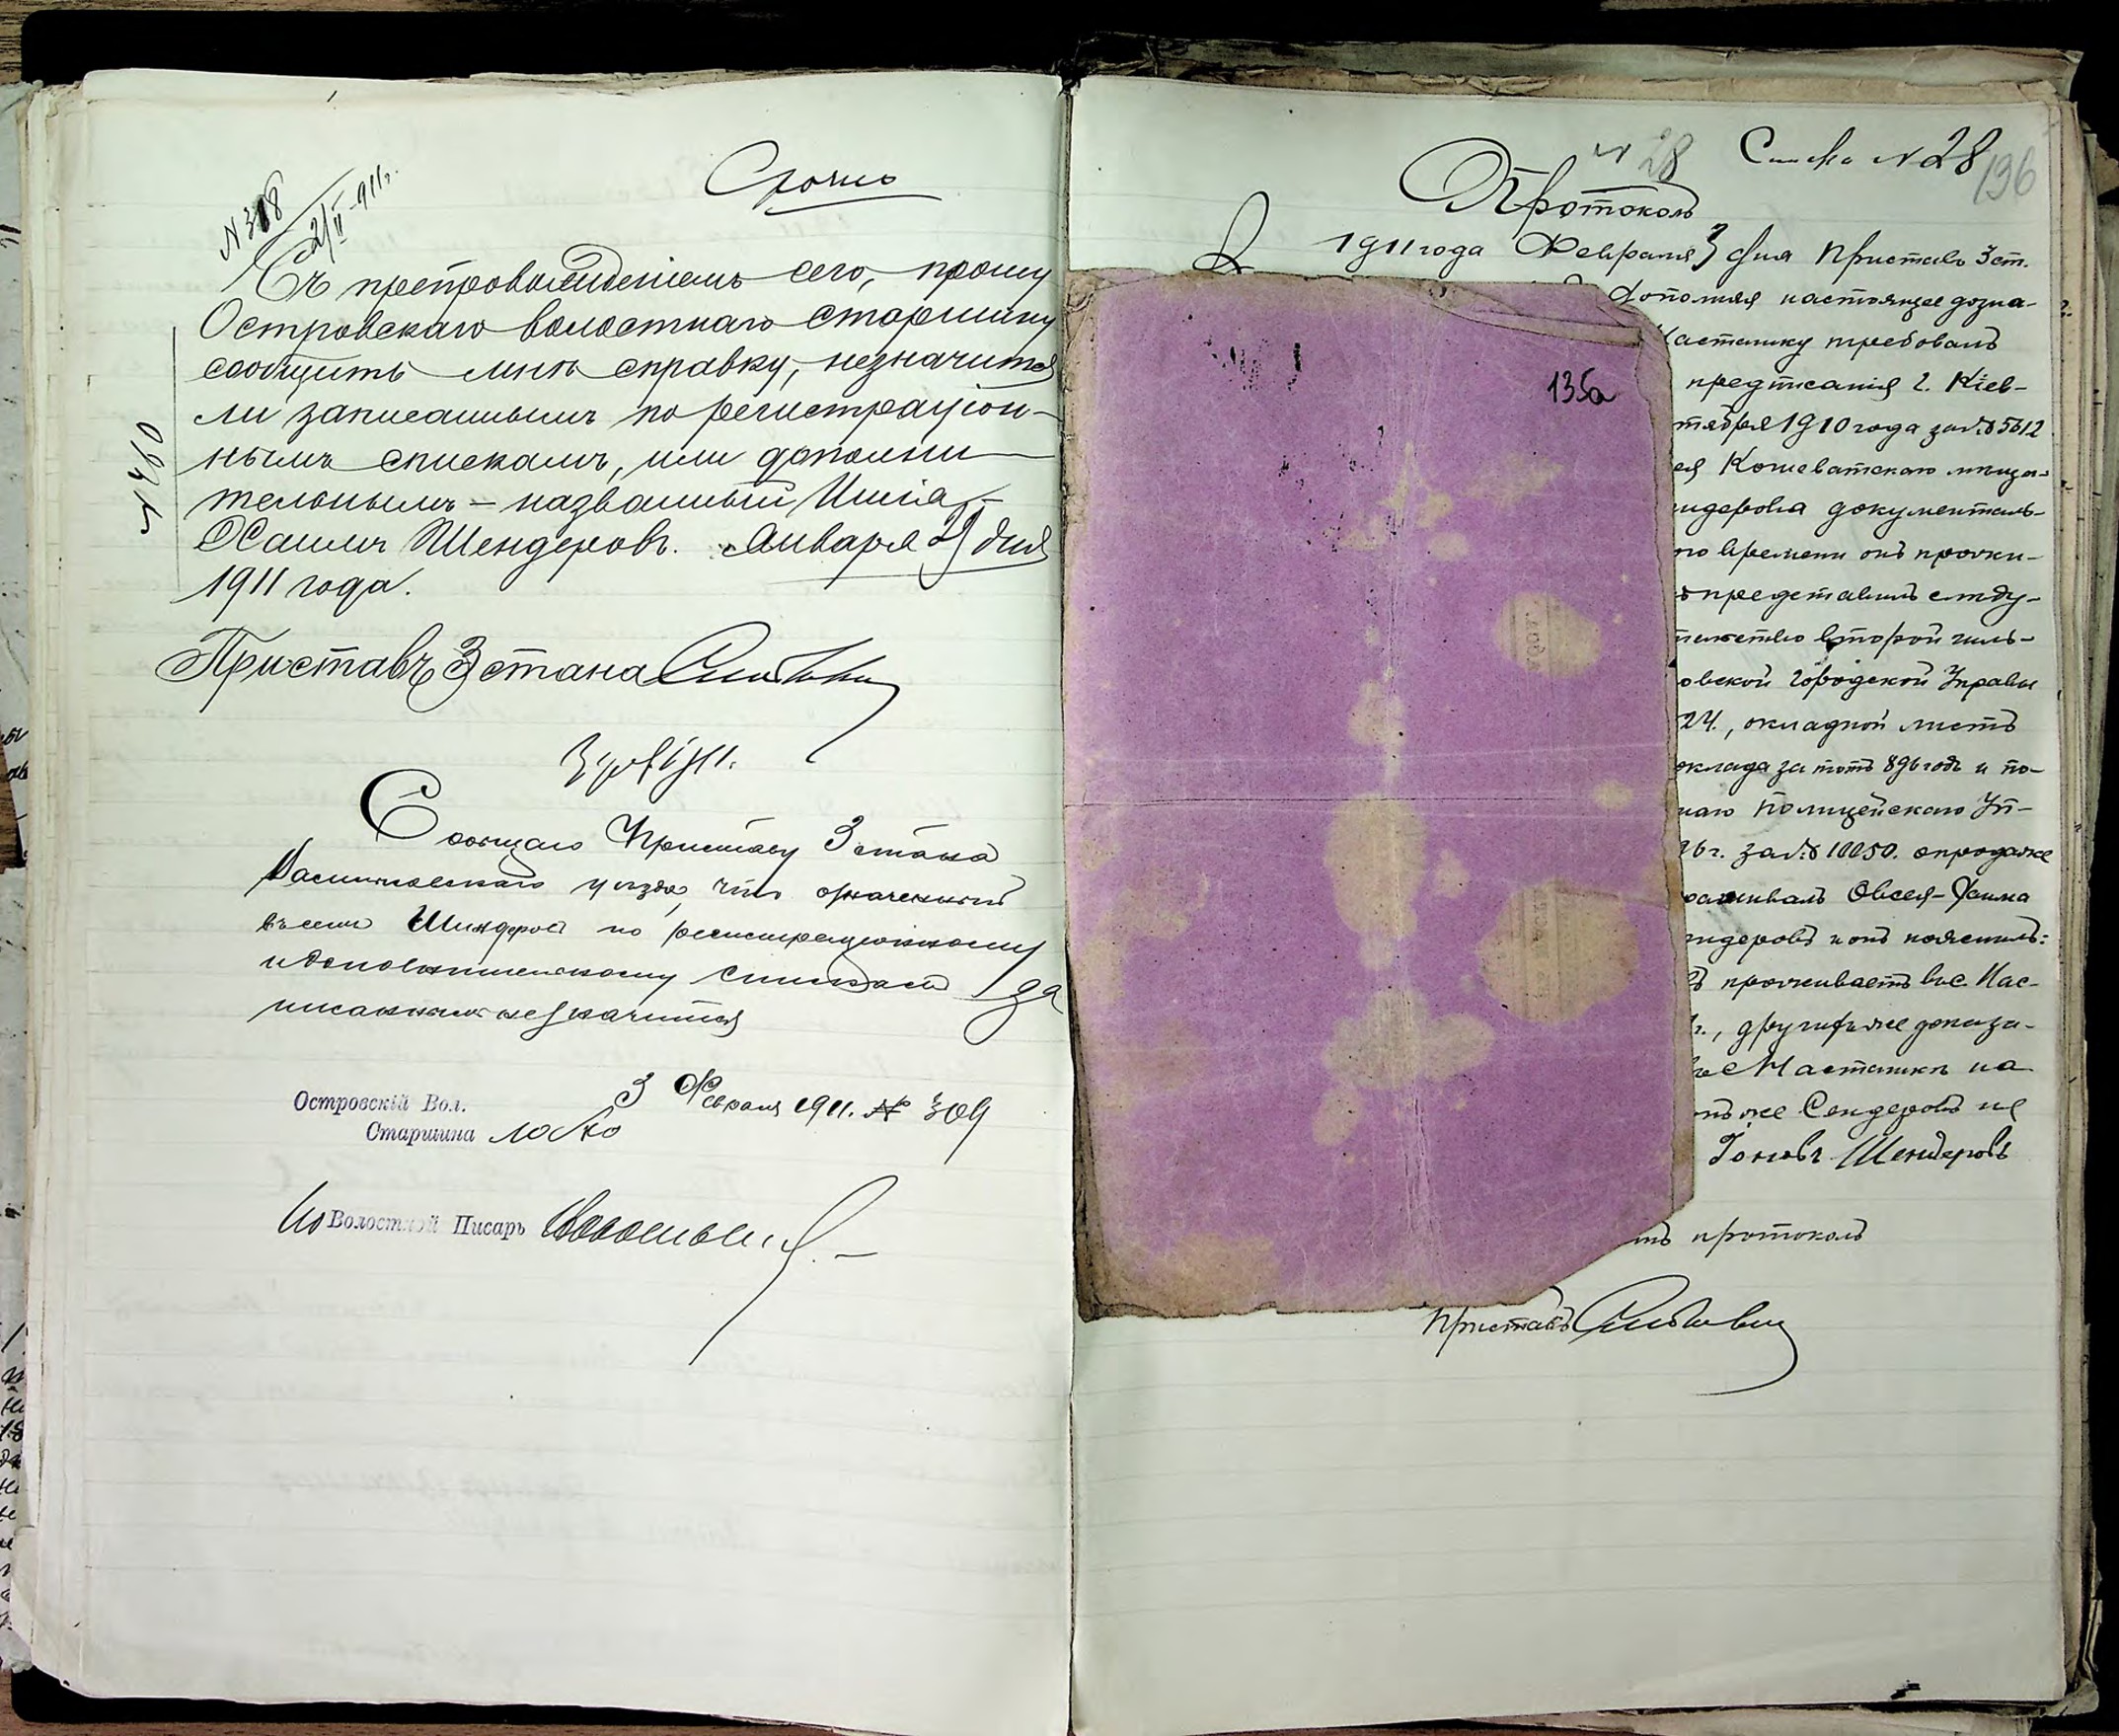 Срочно
N 318
2/II 911 г.
N 260
Съ препровожденіемъ сего, прошу
Островскаго волостнаго старшину
сообщить мнѣ справку, незначится
ли записаннымъ по регистраціон-
нымъ спискамъ, или дополни-
тельнымъ – названный Имшa-
Хаимъ Шендеровъ. Января 29 дня
1911 года.
Приставъ 3 стана
Сообщаю Приставу 3 стана
Васильковскаго уѣзда, что означенный
въ семъ Шендеровъ по регистраціонному
и дополнительному спискамъ за
писаннымъ не значится
3 Февраля 1911. № 309
Островскій Вол.
Старшина
Волостной Писарь
Списка N 28
N 28
136
Протоколъ
1911 года Февраля 3 дня Приставъ 3 ст.
дополняя настоящее дозна-
Насташку требовалъ
предписанія г. Кіев-
тября 1910 года за № 5612
ся Кошеватскаго мѣща-
ндерова документаль-
по времени онъ прожи-
ъ представилъ слѣду-
тельство второй гиль-
овской Городской Управы
24., окладной листъ
оклада за тотъ 896 годъ и по-
наго Полицейскаго Уп-
96 г. за № 10050. о продаже
рашивалъ Овсея-Хаима
ндеровъ и онъ пояснилъ:
проживаетъ въ с. Нас-
г., другихъ же доказа-
въ с. Насташкѣ на
онъ же Сендеровъ не
Іоновъ Шендеровъ
ть протоколъ
Приставъ
135а